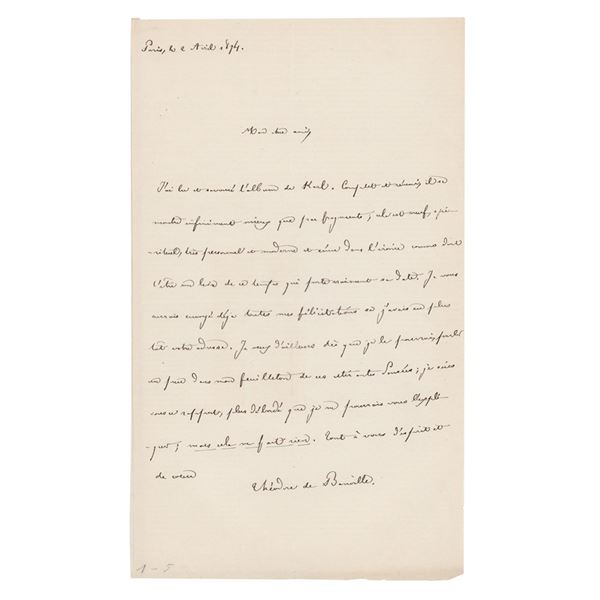 Paris, le 2 Avril 1874.
Mon cher ami,
J'ai lu et savouré l'album de Karl. Complet et réuni, il se
montre infiniment mieux que par fragments; cela est neuf, spi-
rituel, très personnel et moderne et dans l'ironie comme doit
l'être un livre de ce temps qui porte vraiment sa date. Je vous
aurais envoyé déjà toutes mes félicitations si j'avais su plus
tôt votre adresse. Je veux d'ailleurs dès que je le pourrai, parler
un peu dans mon feuilleton de ces Pensées; je suis
sous ce rapport, plus débordé que je ne pourrais vous l'expli-
quer; mais cela ne fait rien. Tout à vous d'esprit et
de cœur
Théodore de Banville.
1 - 5